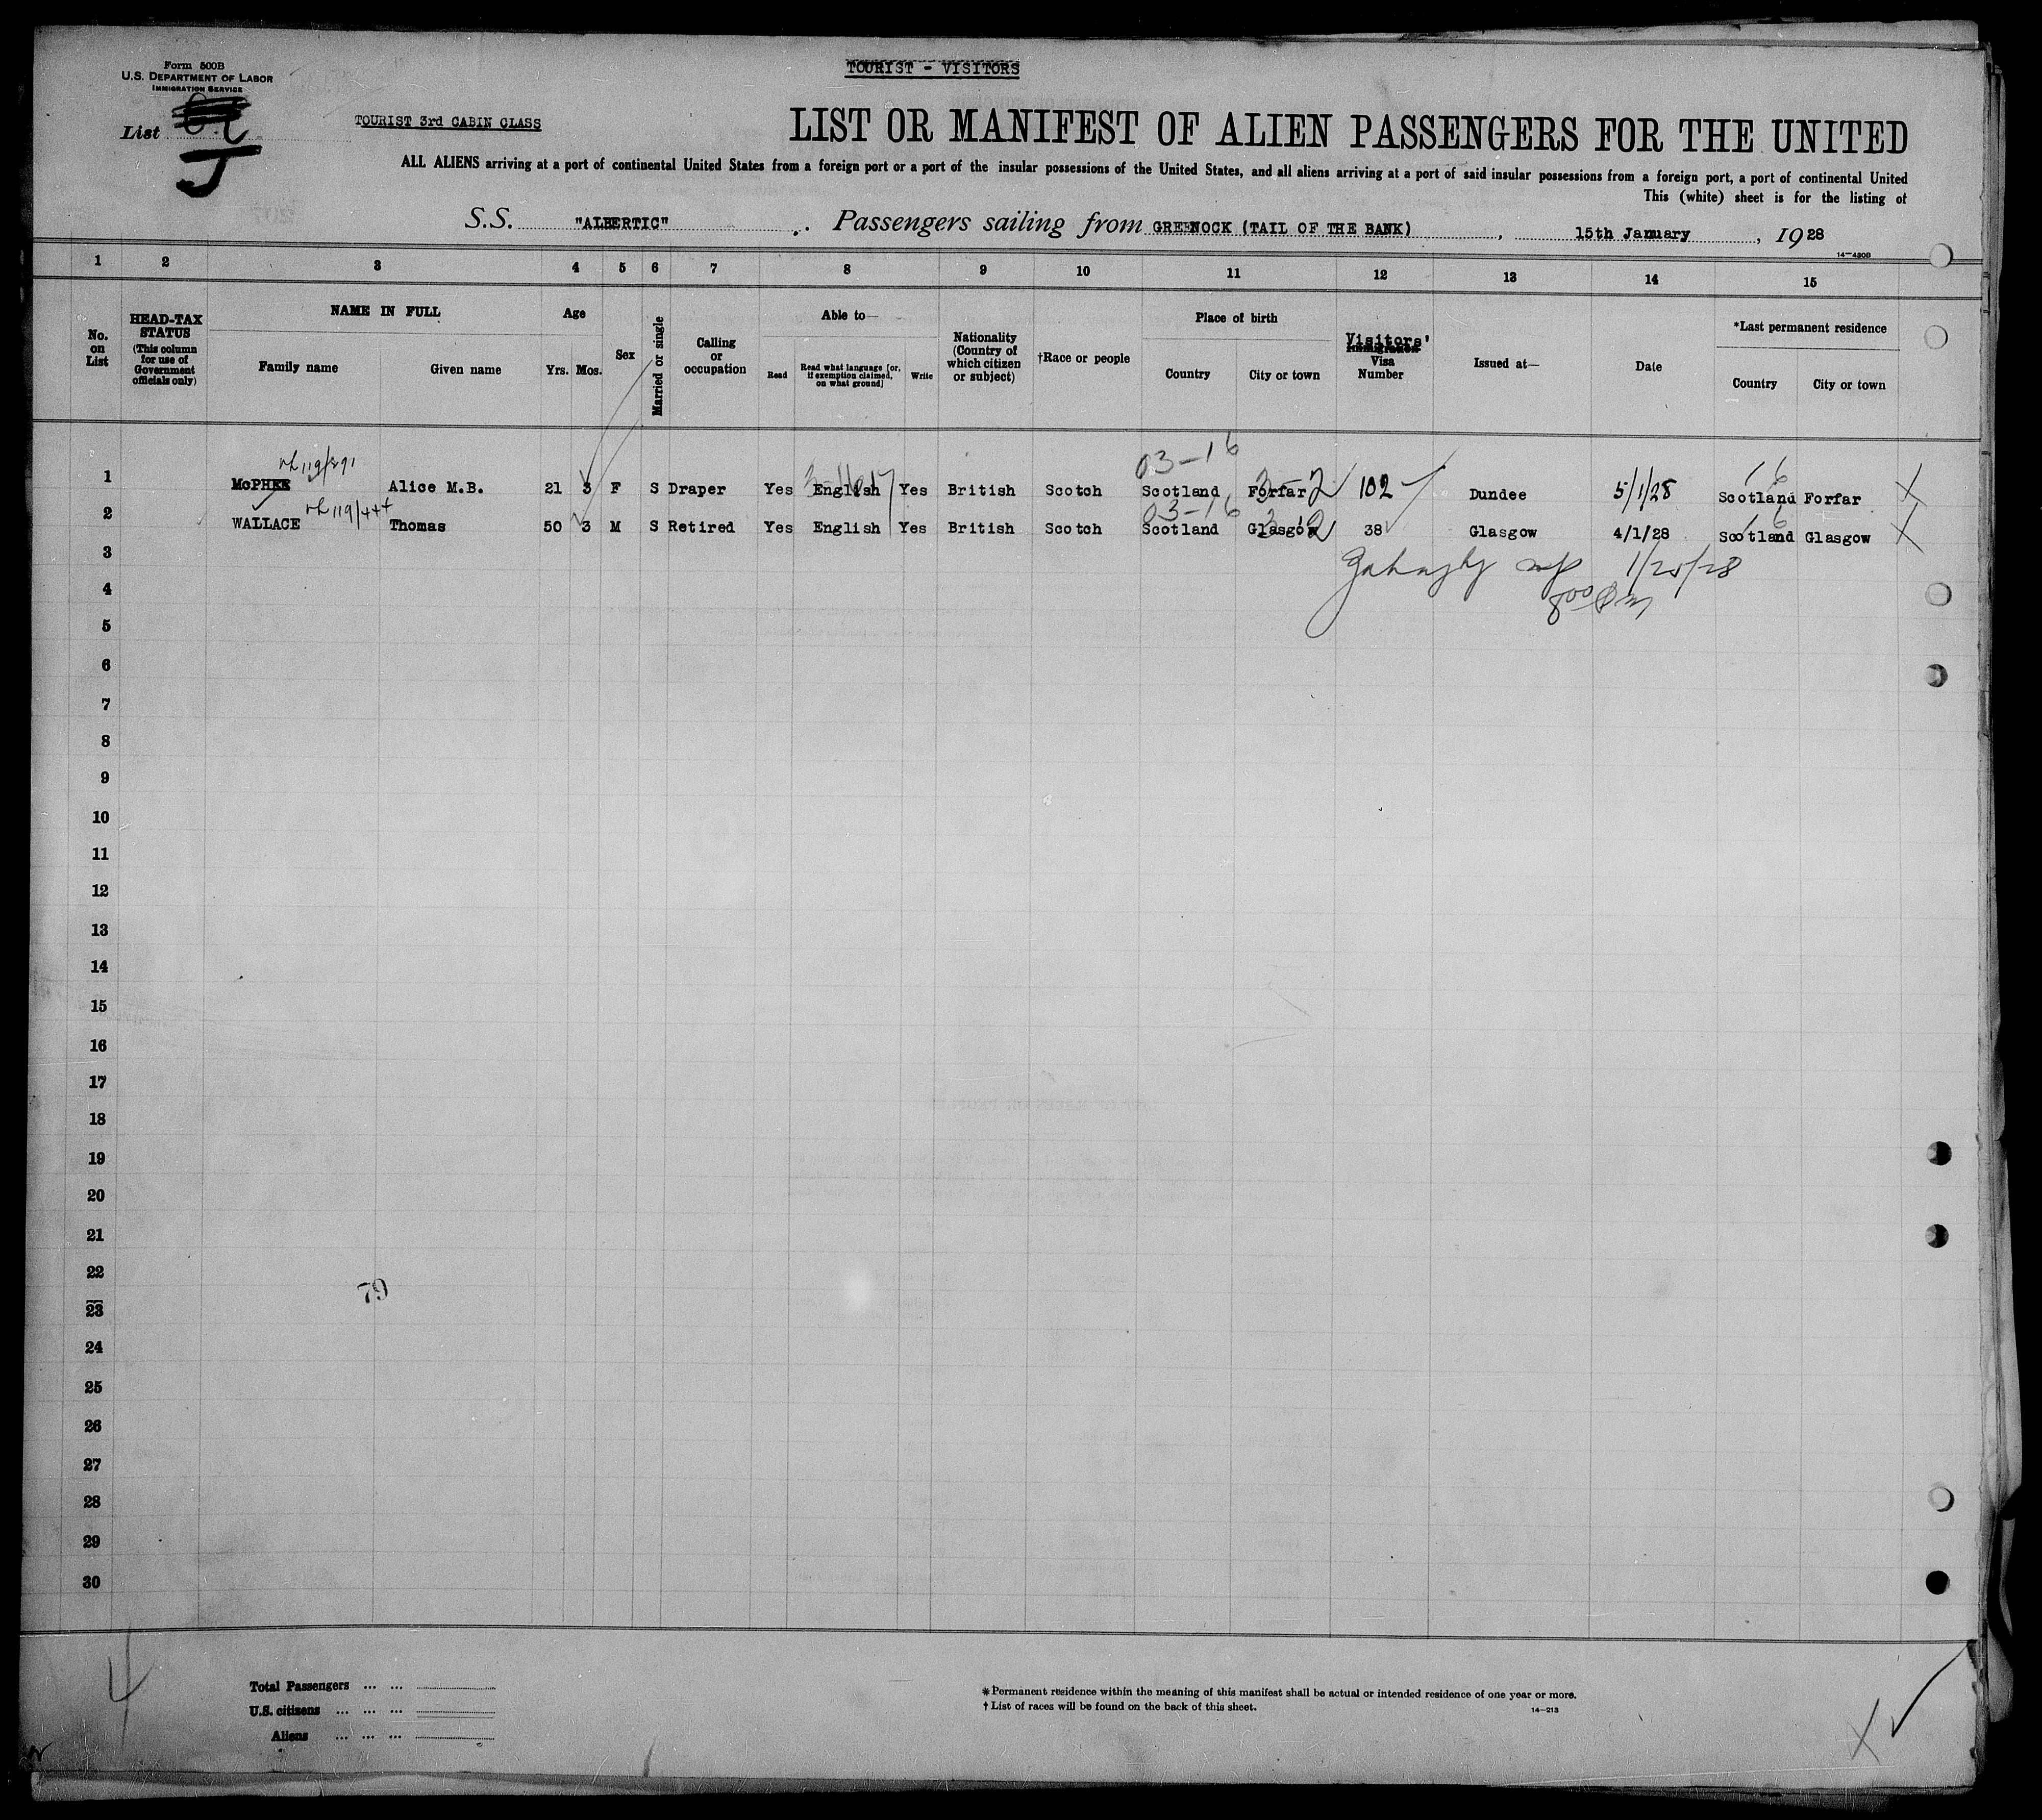 Form 500B
U.S. DEPARTMENT OF LABOR
IMMIGRATION SERVICE
TOURIST - VISITORS
List
J
TOURIST 3rd CABIN CLASS
LIST OR MANIFEST OF ALIEN PASSENGERS FOR THE UNITED
ALL ALIENS arriving at a port of continental United States from a foreign port or a port of the insular possessions of the United States, and all aliens arriving at a port of said insular possessions from a foreign port, a port of continental United
This (white) sheet is for the listing of
S.S. "ALBERTIC" Passengers sailing from GREENOCK (TAIL OF THE BANK), 15th January, 1928
14-430B
1 2 3 4 5 6 7 8 9 10 11 12 13 14 15
No. on List
HEAD-TAX STATUS
(This column for use of Government officials only)
NAME IN FULL
Family name Given name
Age
Yrs. Mos.
Sex
Married or single
Calling or occupation
Able to—
Read Read what language [or, if exemption claimed, on what ground] Write
Nationality (Country of which citizen or subject)
†Race or people
Place of birth
Country City or town
Visitors' Visa Number
Issued at—
Date
*Last permanent residence
Country City or town
03-16
1 McPHEE Alice M.B. 21 3 F S Draper Yes English Yes British Scotch Scotland Forfar 102 Dundee 5/1/28 Scotland Forfar
03-16
2 WALLACE Thomas 50 3 M S Retired Yes English Yes British Scotch Scotland Glasgow 38 Glasgow 4/1/28 Scotland Glasgow
3
4
5
6
7
8
9
10
11
12
13
14
15
16
17
18
19
20
21
22
79
23
24
25
26
27
28
29
30
Total Passengers ... ...
U.S. citizens ... ... ...
Aliens ... ... ...
* Permanent residence within the meaning of this manifest shall be actual or intended residence of one year or more.
† List of races will be found on the back of this sheet.
14-213